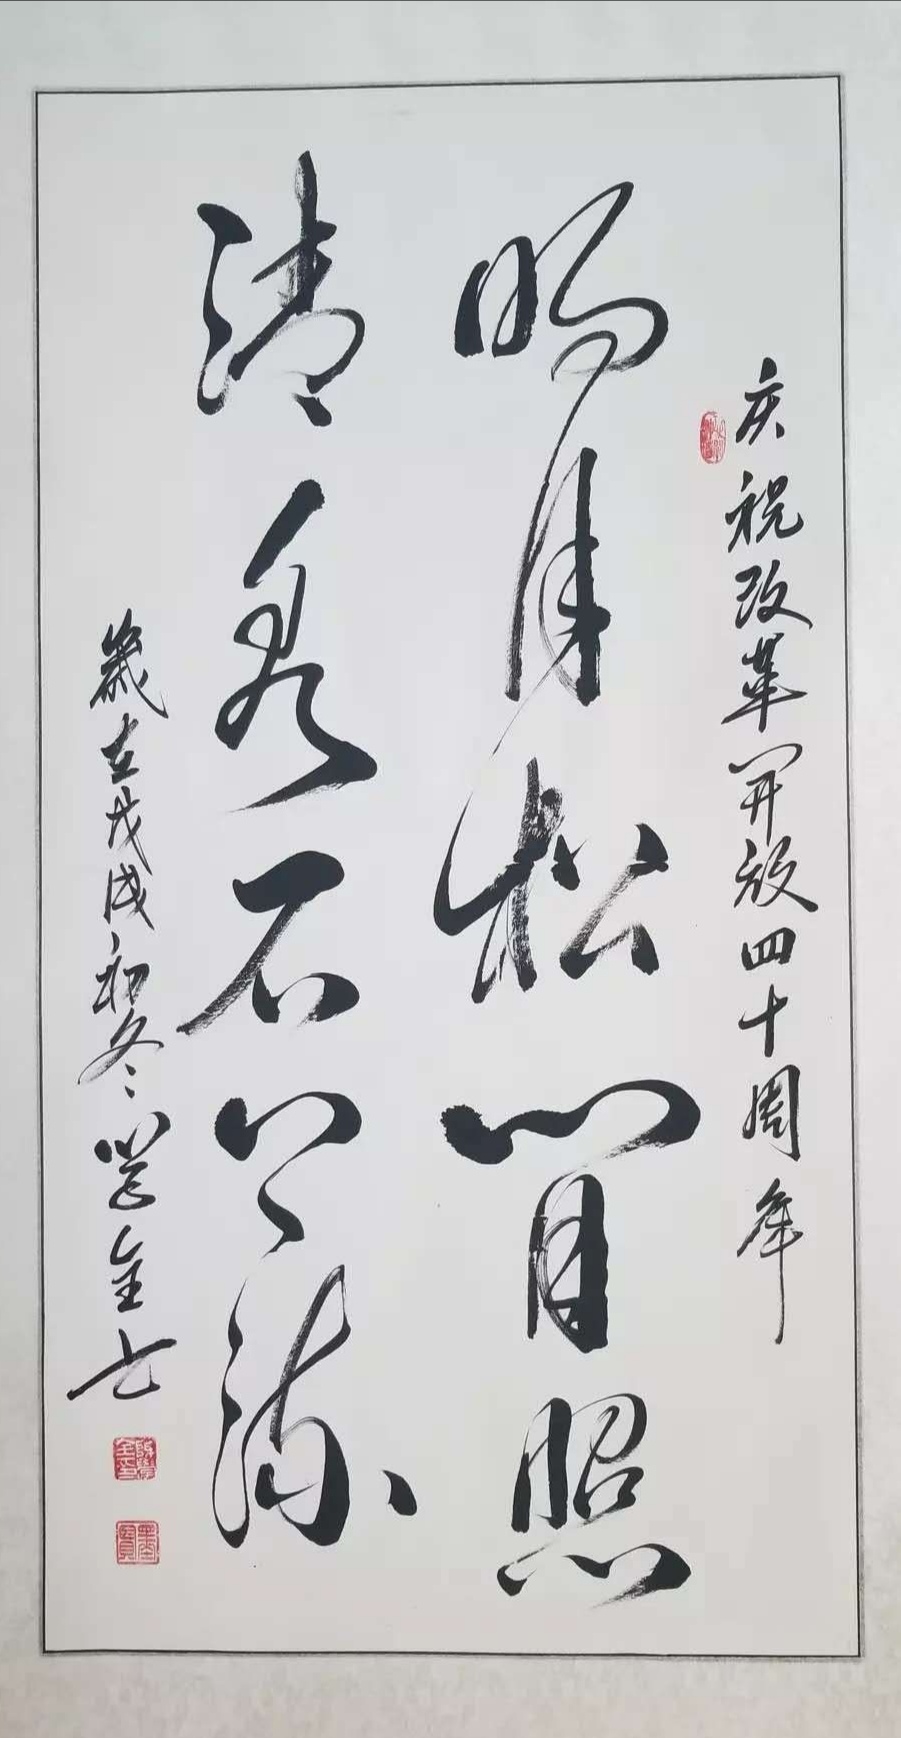 庆祝改革开放四十周年
明月松间照
清泉石上流
歲在戊戌初冬